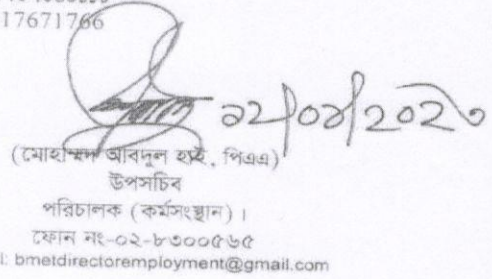 17671766
(মোহাম্মদ আবদুল হাই, পিএএ)
উপসচিব
পরিচালক (কর্মসংস্থান) ।
ফোন নং-০২-৮৩০০৫৬৫
l: bmetdirectoremployment@gmail.com